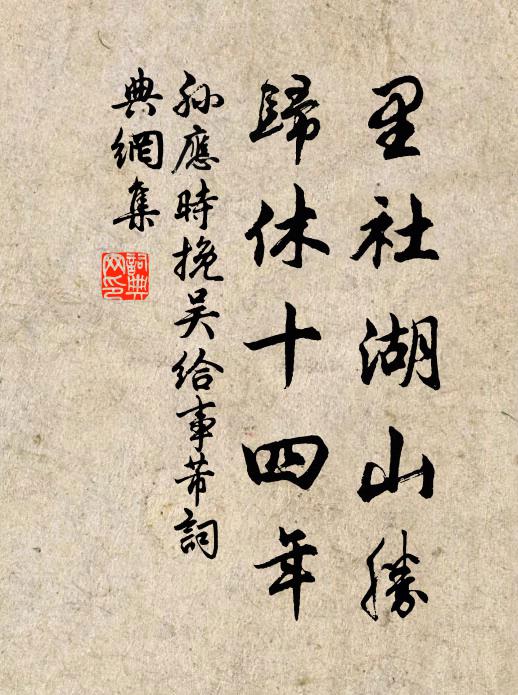 里社湖山勝
歸休十四年
孙應時挽吴给事芾詞
典網集
詞典网印